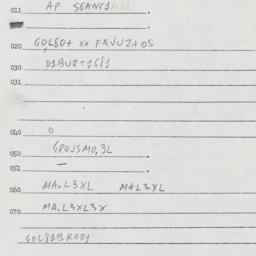 011 AP SGANC1
020 GOL80+ XX FAVUZ+OS
030 D1BURT1681
031
040 0
050 GROJSMO.3L
051 —
060 MA.L3XL MAL3XL
070 MA.L3XL3X
GOL81BROD1